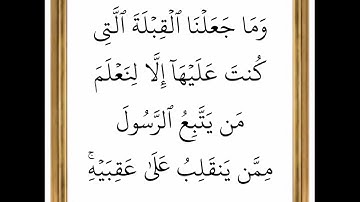 وَمَا جَعَلۡنَا ٱلۡقِبۡلَةَ ٱلَّتِی
كُنتَ عَلَیۡهَاۤ إِلَّا لِنَعۡلَمَ
مَن یَتَّبِعُ ٱلرَّسُولَ
مِمَّن یَنقَلِبُ عَلَىٰ عَقِبَیۡهِۚ